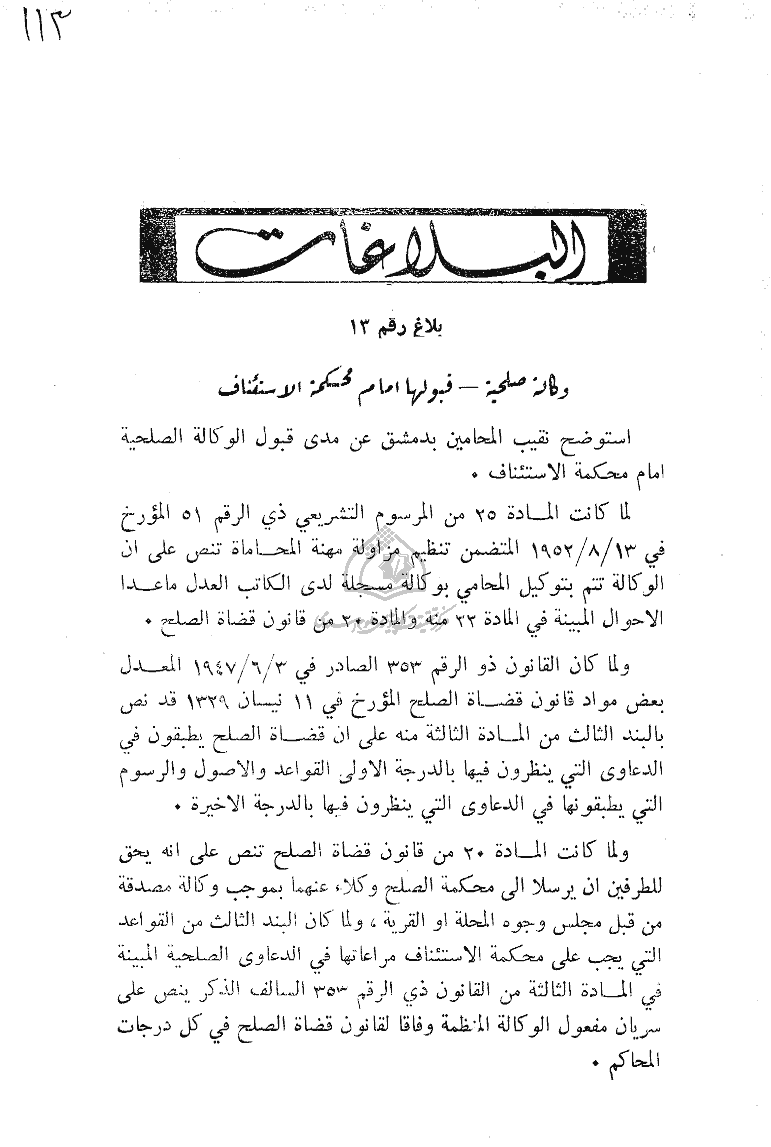 ١١٣
البلاغات
بلاغ رقم ١٣
وكالة صلحية – قبولها امام محكمة الاستئناف
استوضح نقيب المحامين بدمشق عن مدى قبول الوكالة الصلحية
امام محكمة الاستئناف ٠
لما كانت المــادة ٢٥ من المرسوم التشريعي ذي الرقم ٥١ المؤرخ
في ١٣/٨/١٩٥٢ المتضمن تنظيم مزاولة مهنة المحـاماة تنص على ان
الوكالة تتم بتوكيل المحامي بوكالة مسجلة لدى الكاتب العدل ماعــدا
الاحوال المبينة في المادة ٢٢ منه والمادة ٢٠ من قانون قضاة الصلح ٠
ولما كان القانون ذو الرقم ٣٥٣ الصادر في ٣/٦/١٩٤٧ المعــدل
بعض مواد قانون قضــاة الصلح المؤرخ في ١١ نيسان ١٣٢٩ قد نص
بالبند الثالث من المــادة الثالثة منه على ان قضــاة الصلح يطبقون في
الدعاوى التي ينظرون فيها بالدرجة الاولى القواعد والاصول والرسوم
التي يطبقونها في الدعاوى التي ينظرون فيها بالدرجة الاخيرة ٠
ولما كانت المــادة ٢٠ من قانون قضاة الصلح تنص على انه يحق
للطرفين ان يرسلا الى محكمة الصلح وكلاء عنهما بموجب وكالة مصدقة
من قبل مجلس وجوه المحلة او القرية ، ولما كان البند الثالث من القواعد
التي يجب على محكمة الاستئناف مراعاتها في الدعاوى الصلحية المبينة
في المــادة الثالثة من القانون ذي الرقم ٣٥٣ السالف الذكر ينص على
سريان مفعول الوكالة المنظمة وفاقا لقانون قضاة الصلح في كل درجات
المحاكم ٠